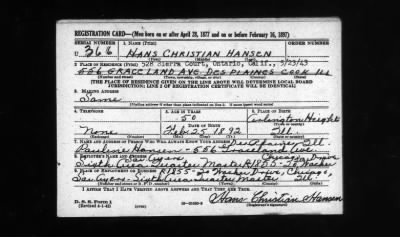 REGISTRATION CARD—(Men born on or after April 28, 1877 and on or before February 16, 1897)
SERIAL NUMBER 1. NAME (Print)
U 366 HANS CHRISTIAN HANSEN
528 Sierra Court, Ontario, Calif., 5/23/63
2. PLACE OF RESIDENCE (Print)
556 GRACELAND AVE DES PLAINES COOK ILL
(THE PLACE OF RESIDENCE GIVEN ON THE LINE ABOVE WILL DETERMINE LOCAL BOARD
JURISDICTION; LINE 2 OF REGISTRATION CERTIFICATE WILL BE IDENTICAL)
3. MAILING ADDRESS
Same
4. TELEPHONE 5. AGE IN YEARS 6. PLACE OF BIRTH
50 Arlington Heights
DATE OF BIRTH
None Feb 25 1892 Ill.
7. NAME AND ADDRESS OF PERSON WHO WILL ALWAYS KNOW YOUR ADDRESS
Des Plaines Ill.
Pauline Hansen - 556 Graceland Ave
8. EMPLOYER'S NAME AND ADDRESS
Sixth Quartermaster
9. PLACE OF EMPLOYMENT OR BUSINESS
Chicago,
Ill
I AFFIRM THAT I HAVE VERIFIED ABOVE ANSWERS AND THAT THEY ARE TRUE.
D. S. S. Form 1
(Revised 4-1-42)
Hans Christian Hansen